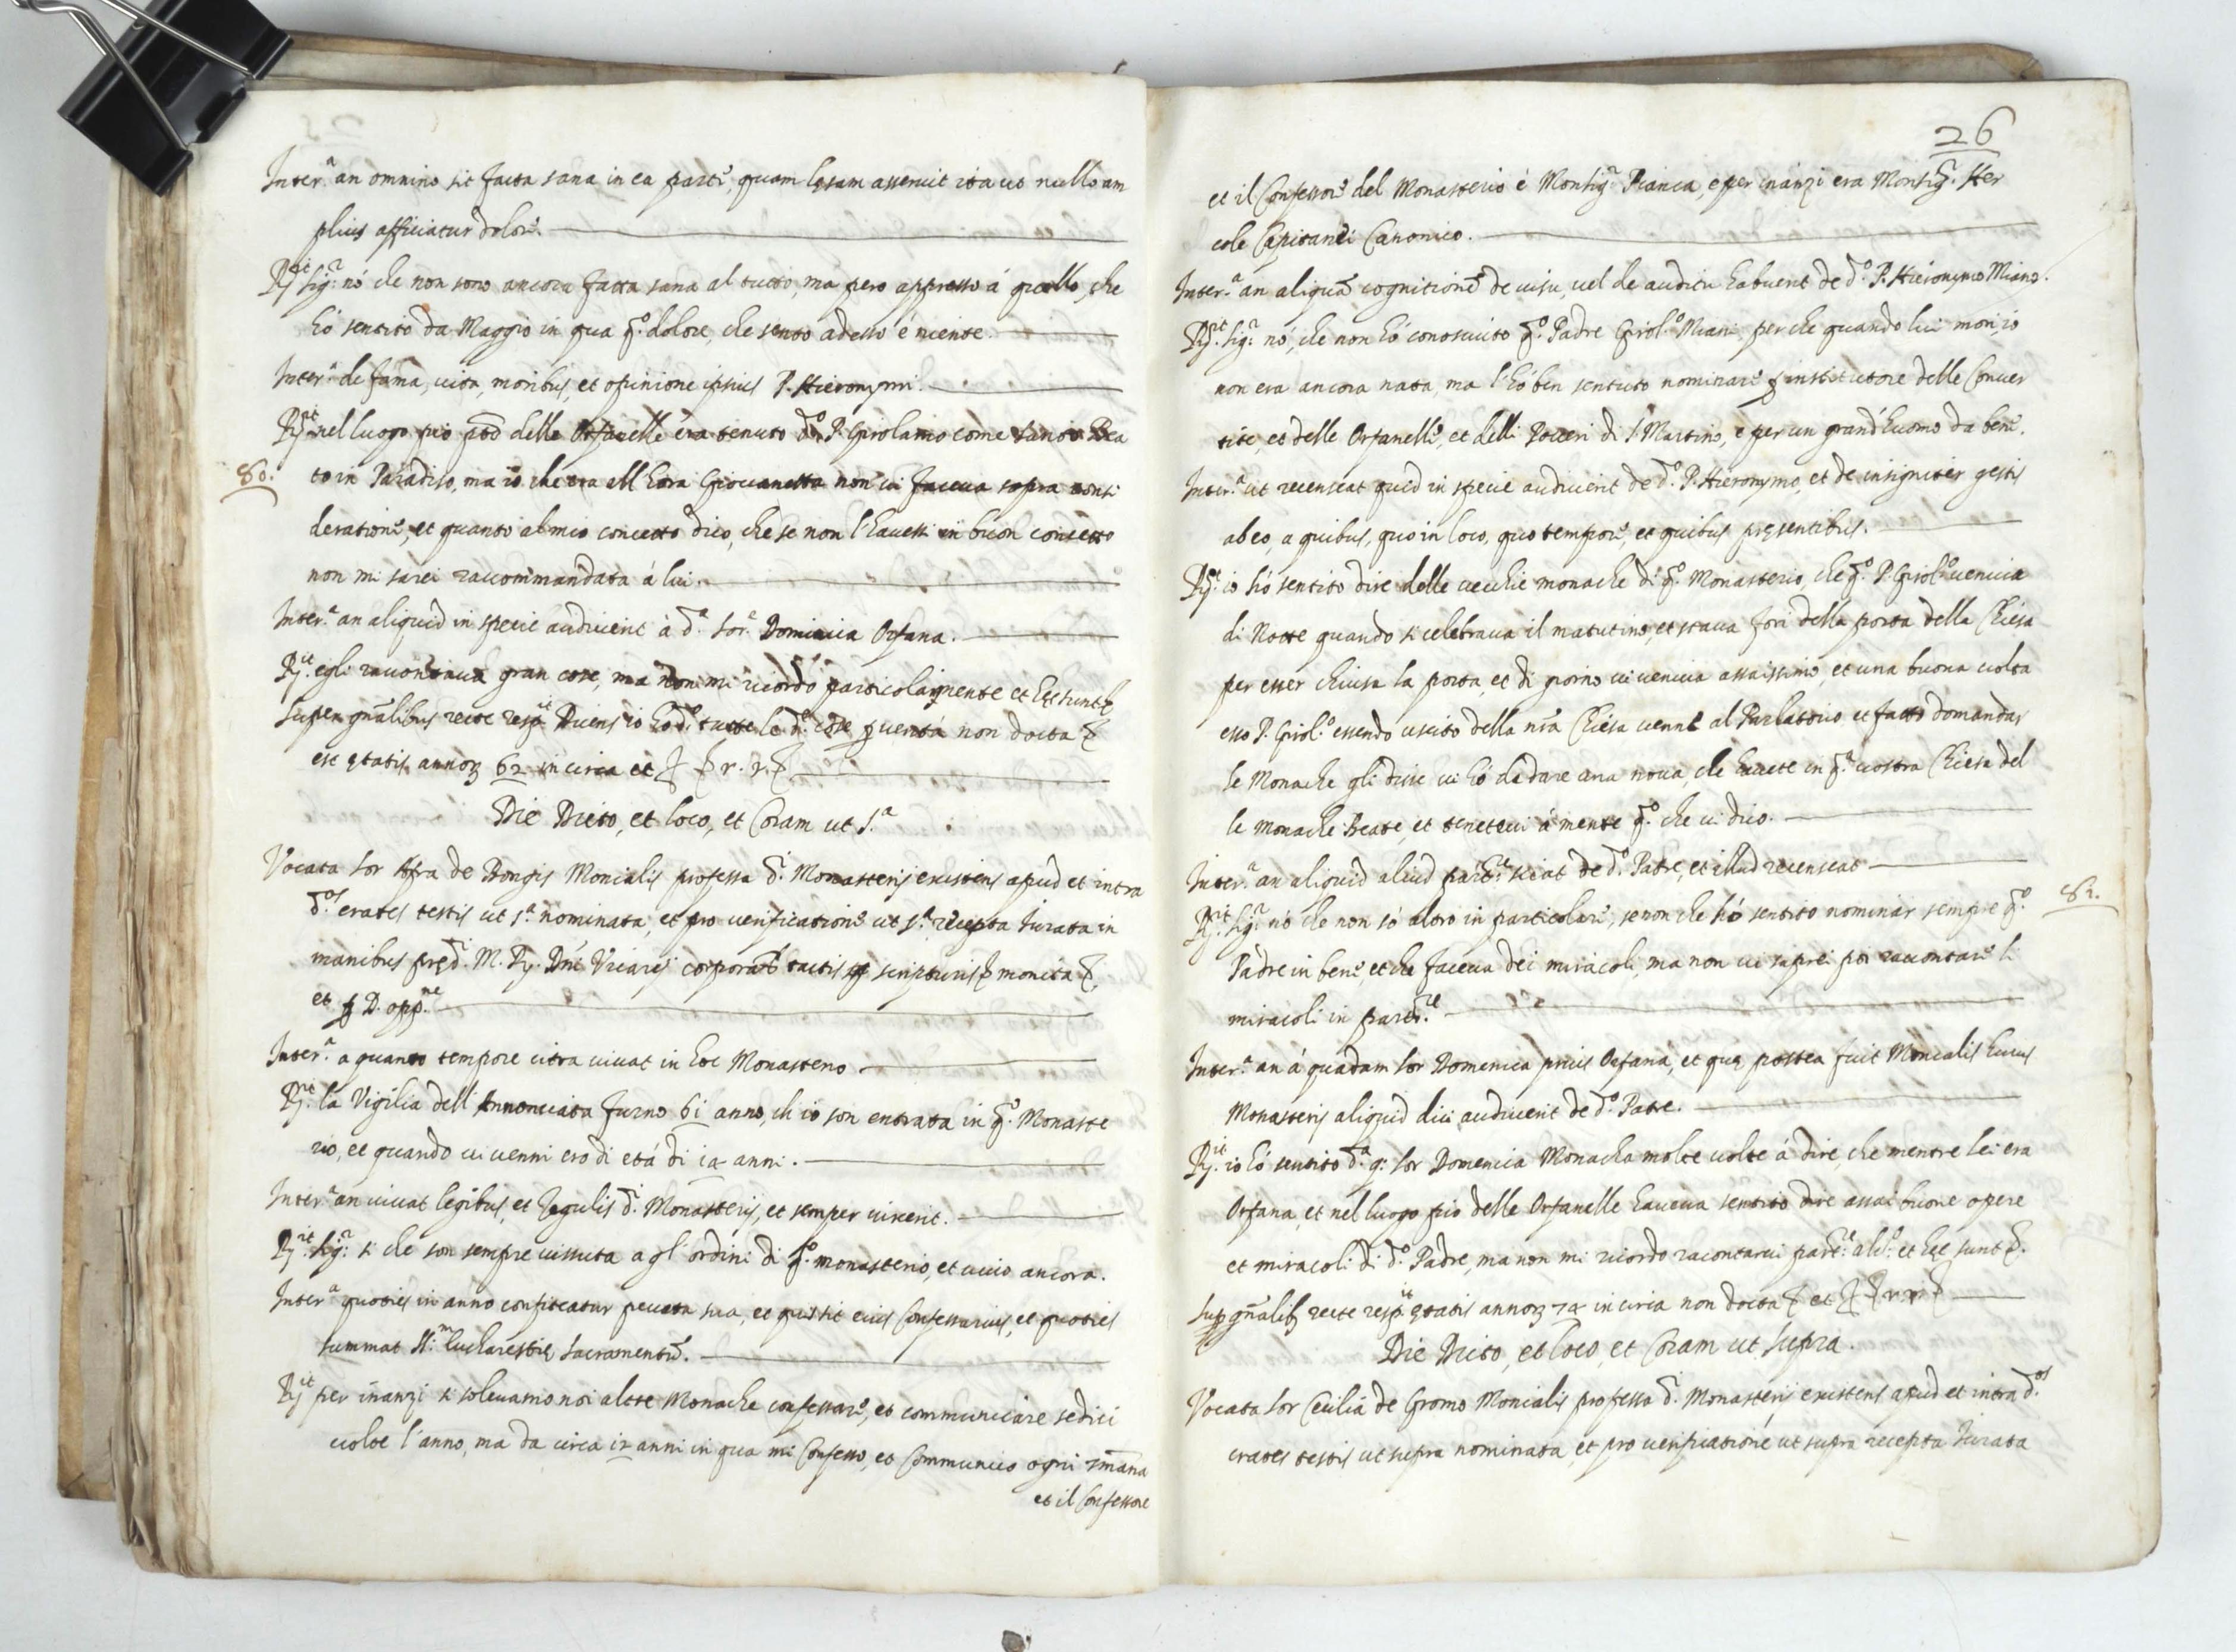 Inter.ª an omnino sit facta sana in ea parte, quam lęsam asseruit ita ut nullo am
plius afficiatur dolore.
Rj.it Sig.r nò che non sono ancora fatta sana al tutto, ma pero appresso á quello, che
hó sentito da Maggio in qua q.º dolore, che sento adesso é niente.
Inter.ª de fama, vita, moribus, et opinione ipsius P. Hieronymi.
Rj.it nel luogo pio pto delle Orfanelle era tenuto do P. Girolamo come santo Bea
80.
to in Paradiso, ma io che era all'hora Giovanetta non vi faceva sopra consi
deratione, et quanto al mio concetto dico, che se non l'havessi in buon concetto
non mi sarei raccommandata á lui.
Inter.ª an aliquid in specie audiverit à d.ª Sor. Dominica Orfana.
Rj.it egli raccontava gran cose, ma non mi ricordo particolarmente et hęc sunt &
super gnalibus recte resp.it Dicens io hò do tutte le d.e cose p verità non docta &
ess ętatis annoꝝ 62 in circa et
Die Dicto, et loco, et Coram ut s.ª
Vocata Sor Afra de Bongis Monialis professa d.i Monasterij existens apud et intra
d.os crates testis ut s.ª nominata, et pro verificatione ut s.ª recepta Iurata in
manibus pręd.i M. Rj. Dni Vicarij corporalr tactis scripturis & monita &
et p D. opp.ne
Inter.ª a quanto tempore citra vivat in hoc Monasterio
Rj.it la Vigilia dell'Annonciata furno 61 anno, ch'io son entrata in q.º Monaste
rio, et quando vi venni ero di età di 12 anni.
Inter.ª an vivat legibus, et Regulis d.i Monasterij, et semper vixerit.
Rj.it Sig.r si che son sempre vissuta a gl'ordini di q.º monasterio, et vivo ancora.
Inter.ª quoties in anno confiteatur peccata sua, et quis sit eius Confessarius, et quoties
summat SS.m Eucharestię Sacramentū.
Rj.it per inanzi si solevamo noi altre Monache confessare, et communicare sedici
volte l'anno, ma da circa 12 anni in qua mi Confesso, et Communico ogni smana
et il Confessore
26
et il Confessore del Monasterio è Monsig.r Pianca, e per inanzi era Monsig.r Her
cole Capitanei Canonico.
Inter.ª an aliquā cognitionē de visu, vel de auditu habuerit de d.º P. Hieronymo Miano.
Rj.it Sig.r nò, che non hó conosciuto q.º Padre Girol.º Miani perche quando lui morì, io
non era ancora nata, ma l'hó ben sentuto nominare p institutore delle Conver
tite, et delle Orfanelle, et delli Poveri di S. Martino, e per un grand'huomo da bene.
Inter.ª ut recenseat quid in specie audiverit de d.º P. Hieronymo, et de insigniter gestis
ab eo, a quibus, quo in loco, quo tempore, et quibus pręsentibus.
Rj.it io hó sentito dire delle vecchie monache di q.º Monasterio, che q.º P. Girol.º veniva
di Notte quando si celebrava il matutino, et stava fori della porta della Chiesa
per esser chiusa la porta, et di giorno vi veniva assaissimo, et una buona volta
esso P. Girol.º essendo uscito della nra Chiesa venne al Parlatorio et fatto domandar
le Monache gli disse vi hó da dare una nova, che havete in q.ª vostra Chiesa del
le Monache Beate, et tenetevi á mente q.º che vi dico.
Inter.ª an aliquid aliud part.re sciat de d.º Patre, et illud recenseat
Rj.it Sig.r nò che non só altro in particolare, se non che hò sentito nominar sempre q.º
81.
Padre in bene, et che faceva dei miracoli, ma non vi saprei poi raccontare li
miracoli in part.re
Inter.ª an á quadam Sor Domenica prius Orfana, et quę postea fuit Monialis huius
Monasterij aliquid dici audiverit de d.º Patre.
Rj.it io hó sentito d.ª q. Sor Domenica Monacha molte volte á dire, che mentre lei era
Orfana, et nel luogo pio delle Orfanelle haveva sentito dire assai buone opere
et miracoli di d.º Padre, ma non mi ricordo racontarvi part.e al.º et hęc sunt &.
Sup gnalibꝫ recte resp.it ętatis annoꝝ 72 in circa non docta & et
Die Dicto, et loco, et Coram ut supra.
Vocata Sor Cecilia de Gromo Monialis professa d.i Monasterij existens apud et intra d.os
crates testis ut supra nominata, et pro verificatione ut supra recepta Iurata